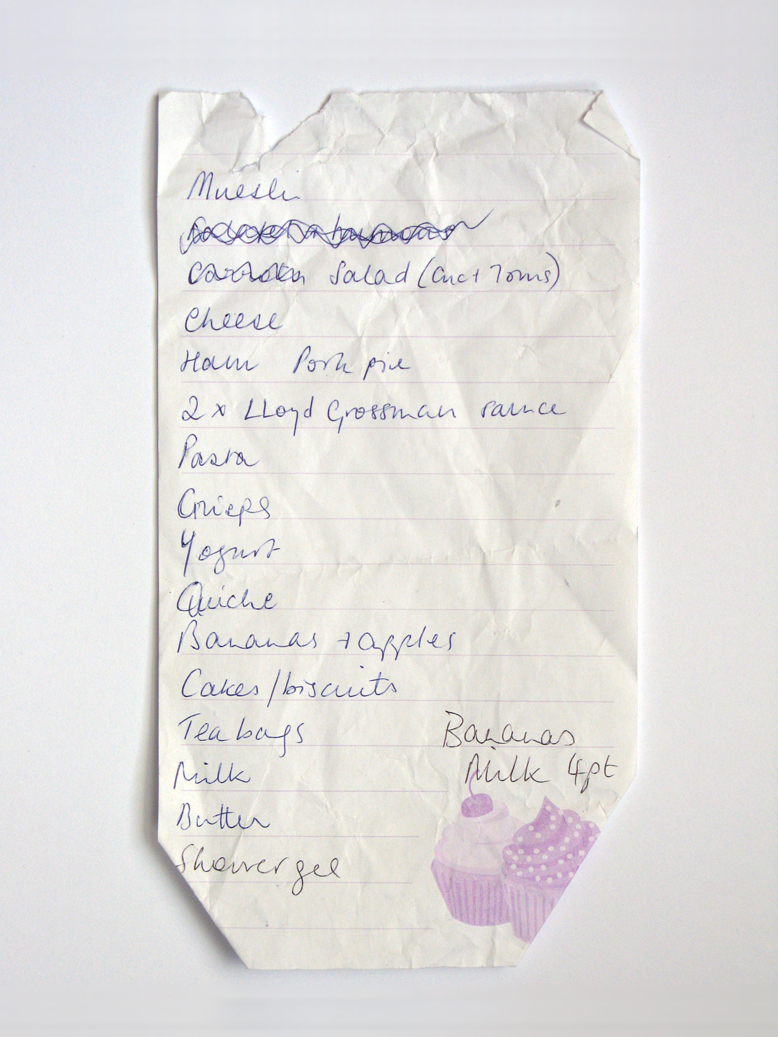 Muesli
Salad (Cuc + Toms)
Cheese
Ham Pork pie
2 x LLoyd Grossman saunce
Pasta
Crisps
Yogurt
Quiche
Bananas + apples
Cakes/biscuits
Tea bags
Milk
Butter
Shower gel
Bananas
Milk 4pt